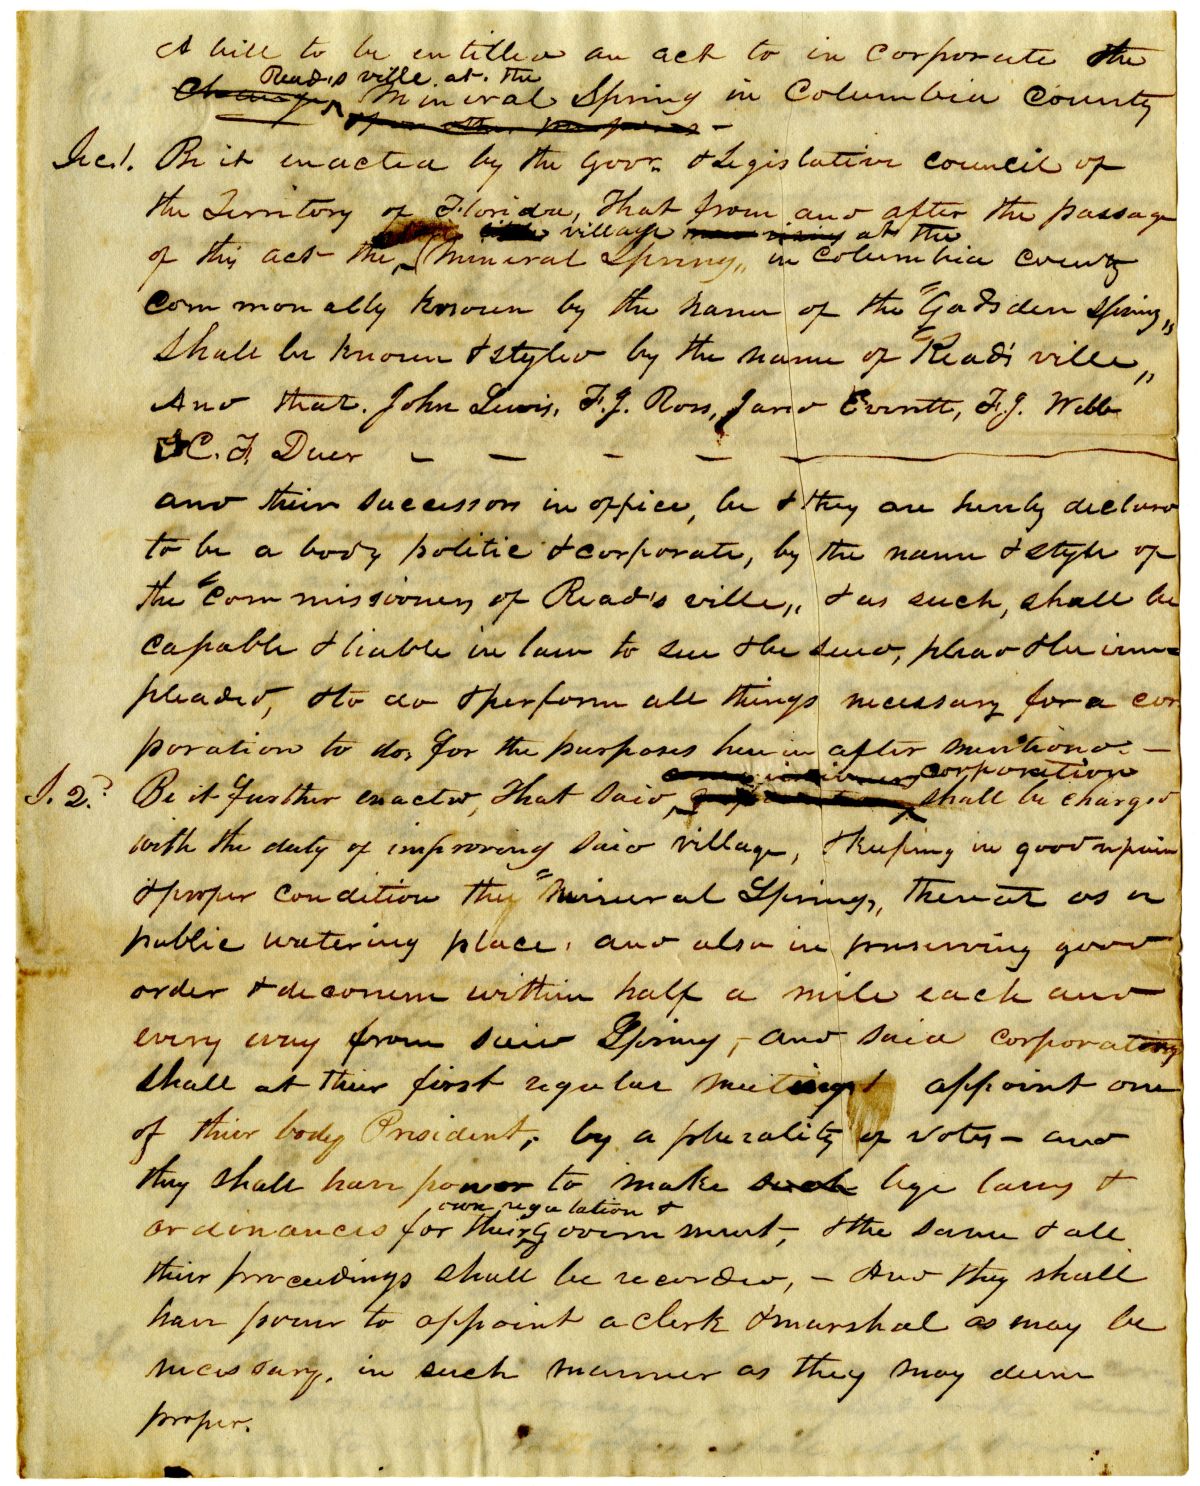 A bill to be entitled an act to in corporate the
Read's ville at the
Change Mineral Spring in Columbia County
Sec. 1. Be it enacted by the Govr. & Legislative council of
the Territory of Florida, That from and after the passage
village at the
of this act the Mineral Spring,, in Columbia County
commonally known by the name of the "Gadsden Spring,,
Shall be known & styled by the name of "Read's ville,,
And that. John Lewis, F. J. Ross, Jared Everett, F. J. Webb
& C. F. Duer
and their successors in office, be & they are hereby declared
to be a body politic & corporate, by the name & style of
the "Commissioners of Read's ville,, & as such, shall be
capable & liable in law to sue & be sued, plead & be im=
pleaded, & to do & perform all things necessary for a cor
poration to do, for the purposes here in after mentioned. —
corporation
S. 2. Be it further enacted, That said, shall be charged
with the duty of improving said village, & keeping in good repair
& proper condition the "Mineral Spring,, thereat as a
public watering place, and also in preserving good
order & decorum within half a mile each and
every way from said Spring, – and said corporation
shall at their first regular meeting appoint one
of their body President, by a plurality of votes – and
they shall have power to make such bye laws &
own regulation &
ordinances for their government, & the same & all
their proceedings shall be recorded, – And they shall
have power to appoint a clerk & marshal as may be
necessary, in such manner as they may deem
proper.